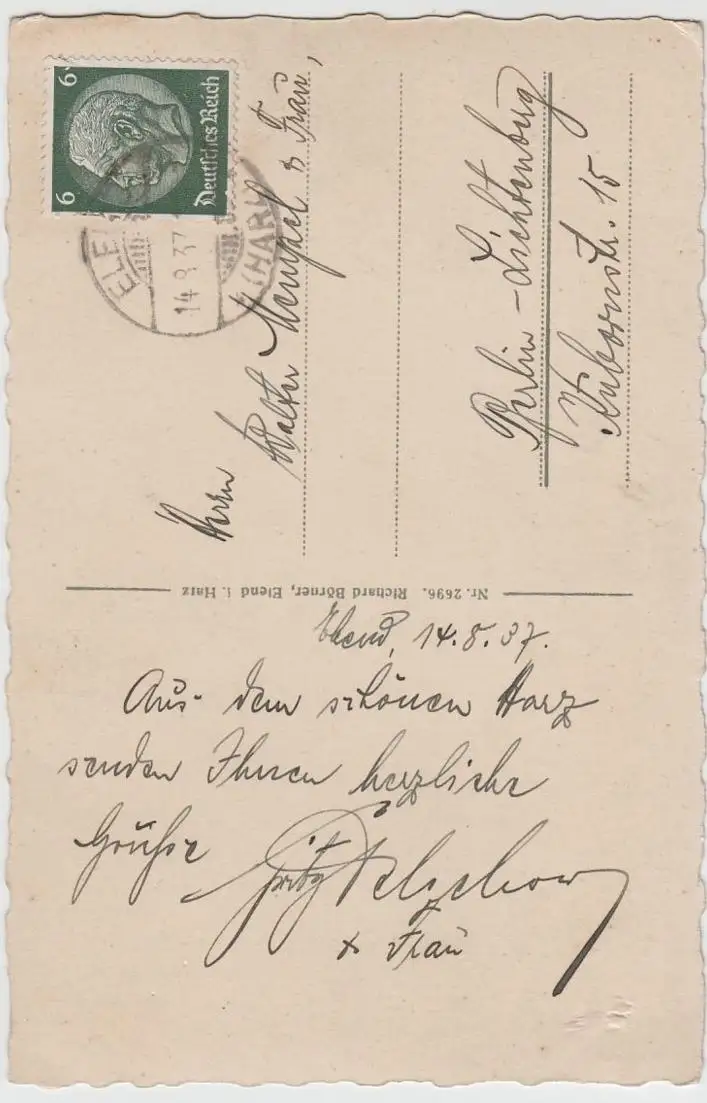 6 6
Deutsches Reich
ELEND (HARZ)
14.8.37
Herrn
Walter Mempel & Frau,
Berlin-Lichtenburg
str. 15
Nr. 2696. Richard Börner, Elend i. Harz
Elend, 14.8.37.
Aus dem schönen Harz
senden Ihnen herzliche
Grüße Fritz
& Frau